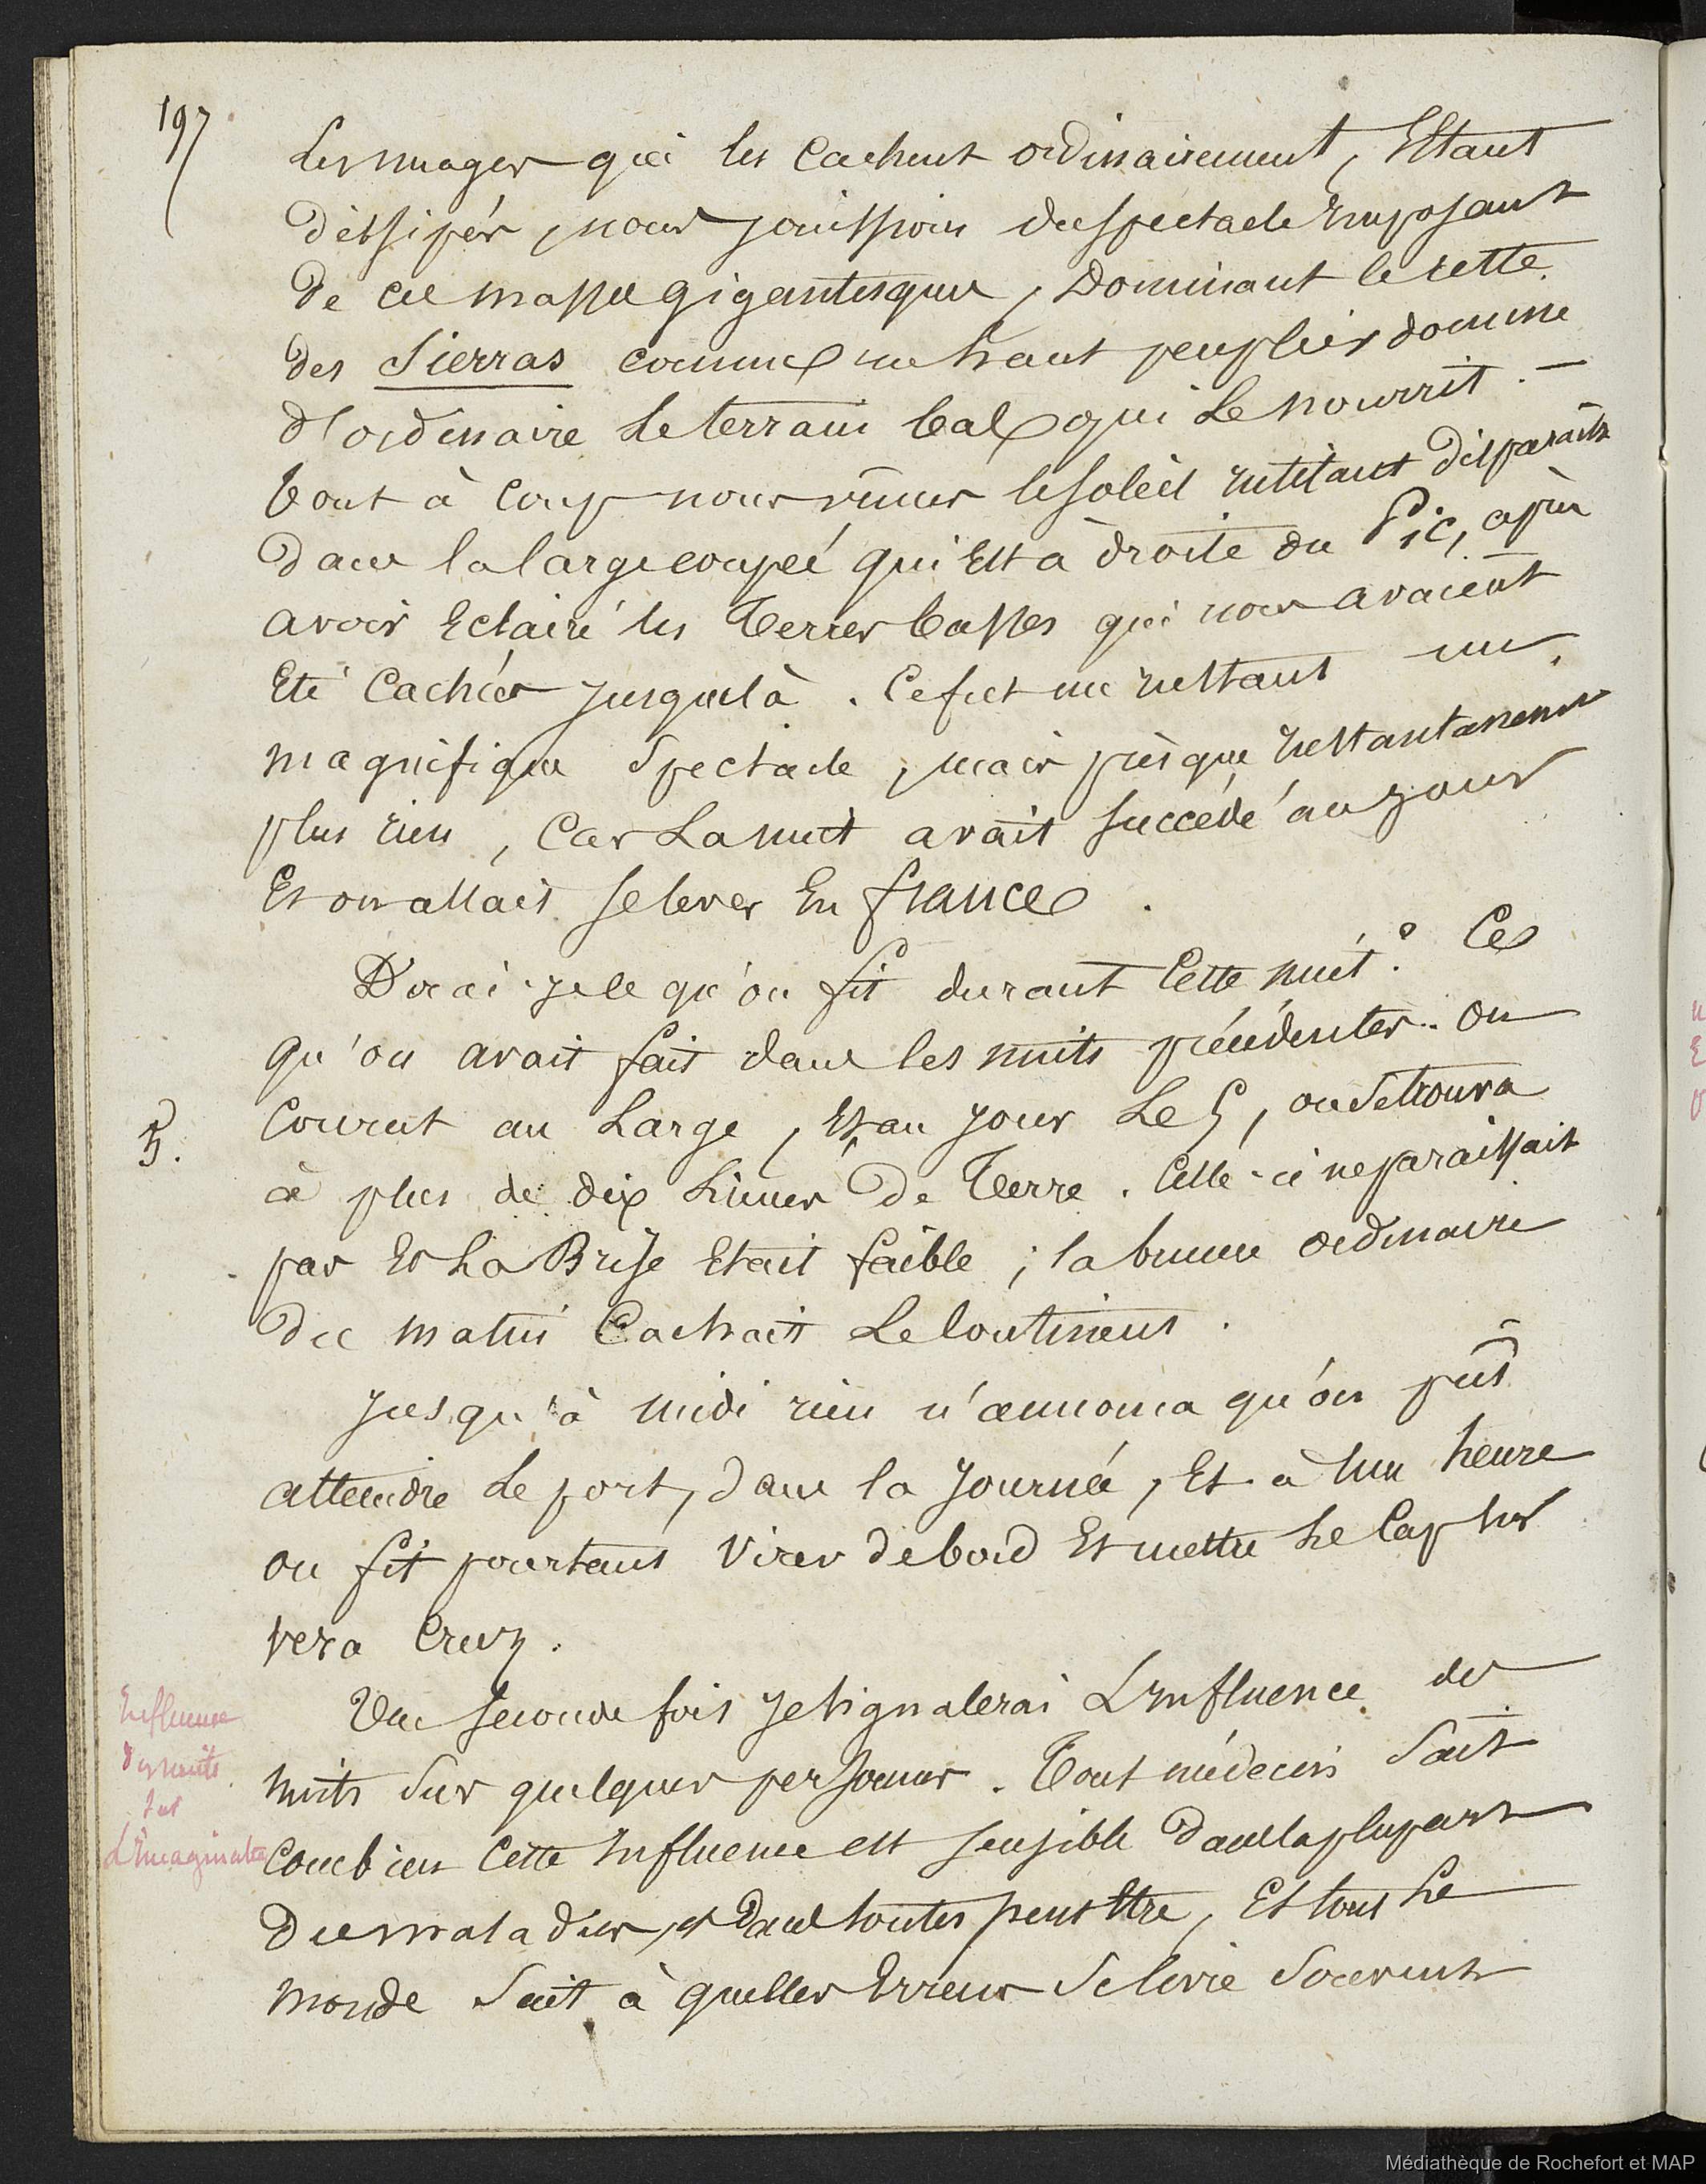 197
Les nuages qui les cachent ordinairement, Etant
dissipés, nous jouissions du spectacle Imposant
de ces masses gigantesques, Dominant le reste
des Sierras comme un haut peuplier domine
d'ordinaire le terrain bas qui le nourrit. —
Tout à coup nous vimes le soleil rutilant disparaitre
dans la large coupée qui Est à droite du Pic, après
avoir Eclairé les Terres basses qui nous avaient
Eté Cachées jusques là. Ce fut un Instant un
magnifique spectacle, mais presque Instantanement
plus rien, Car La nuit avait succédé au jour
Et on allait se lever En france.
Dirai-je le qu'on fit durant Cette nuit? Ce
qu'on avait fait dans les nuits précédentes. On
5.
Courut au Large, Et au jour Le 5, on se trouva
à plus de dix Lieues de Terre. Celle-ci ne paraissait
pas Et La Brise Etait faible; la brume ordinaire
du matin Cachait Le Continent.
Jusqu'à midi rien n'annonca qu'on pût
atteindre le port, dans la Journée, Et à Une heure
on fit pourtant Virer de bord Et mettre Le Cap sur
Vera Cruz.
Influence
des nuits
sur
L'Imagination
Une seconde fois je signalerai L'Influence des
nuits sur quelques personnes. Tout médecin Sait
Combien Cette Influence est sensible dans la plupart
des maladies, et dans toutes peut Etre, Et tout Le
monde Sait à quelles Erreurs Se livre Souvent
Médiathèque de Rochefort et MAP